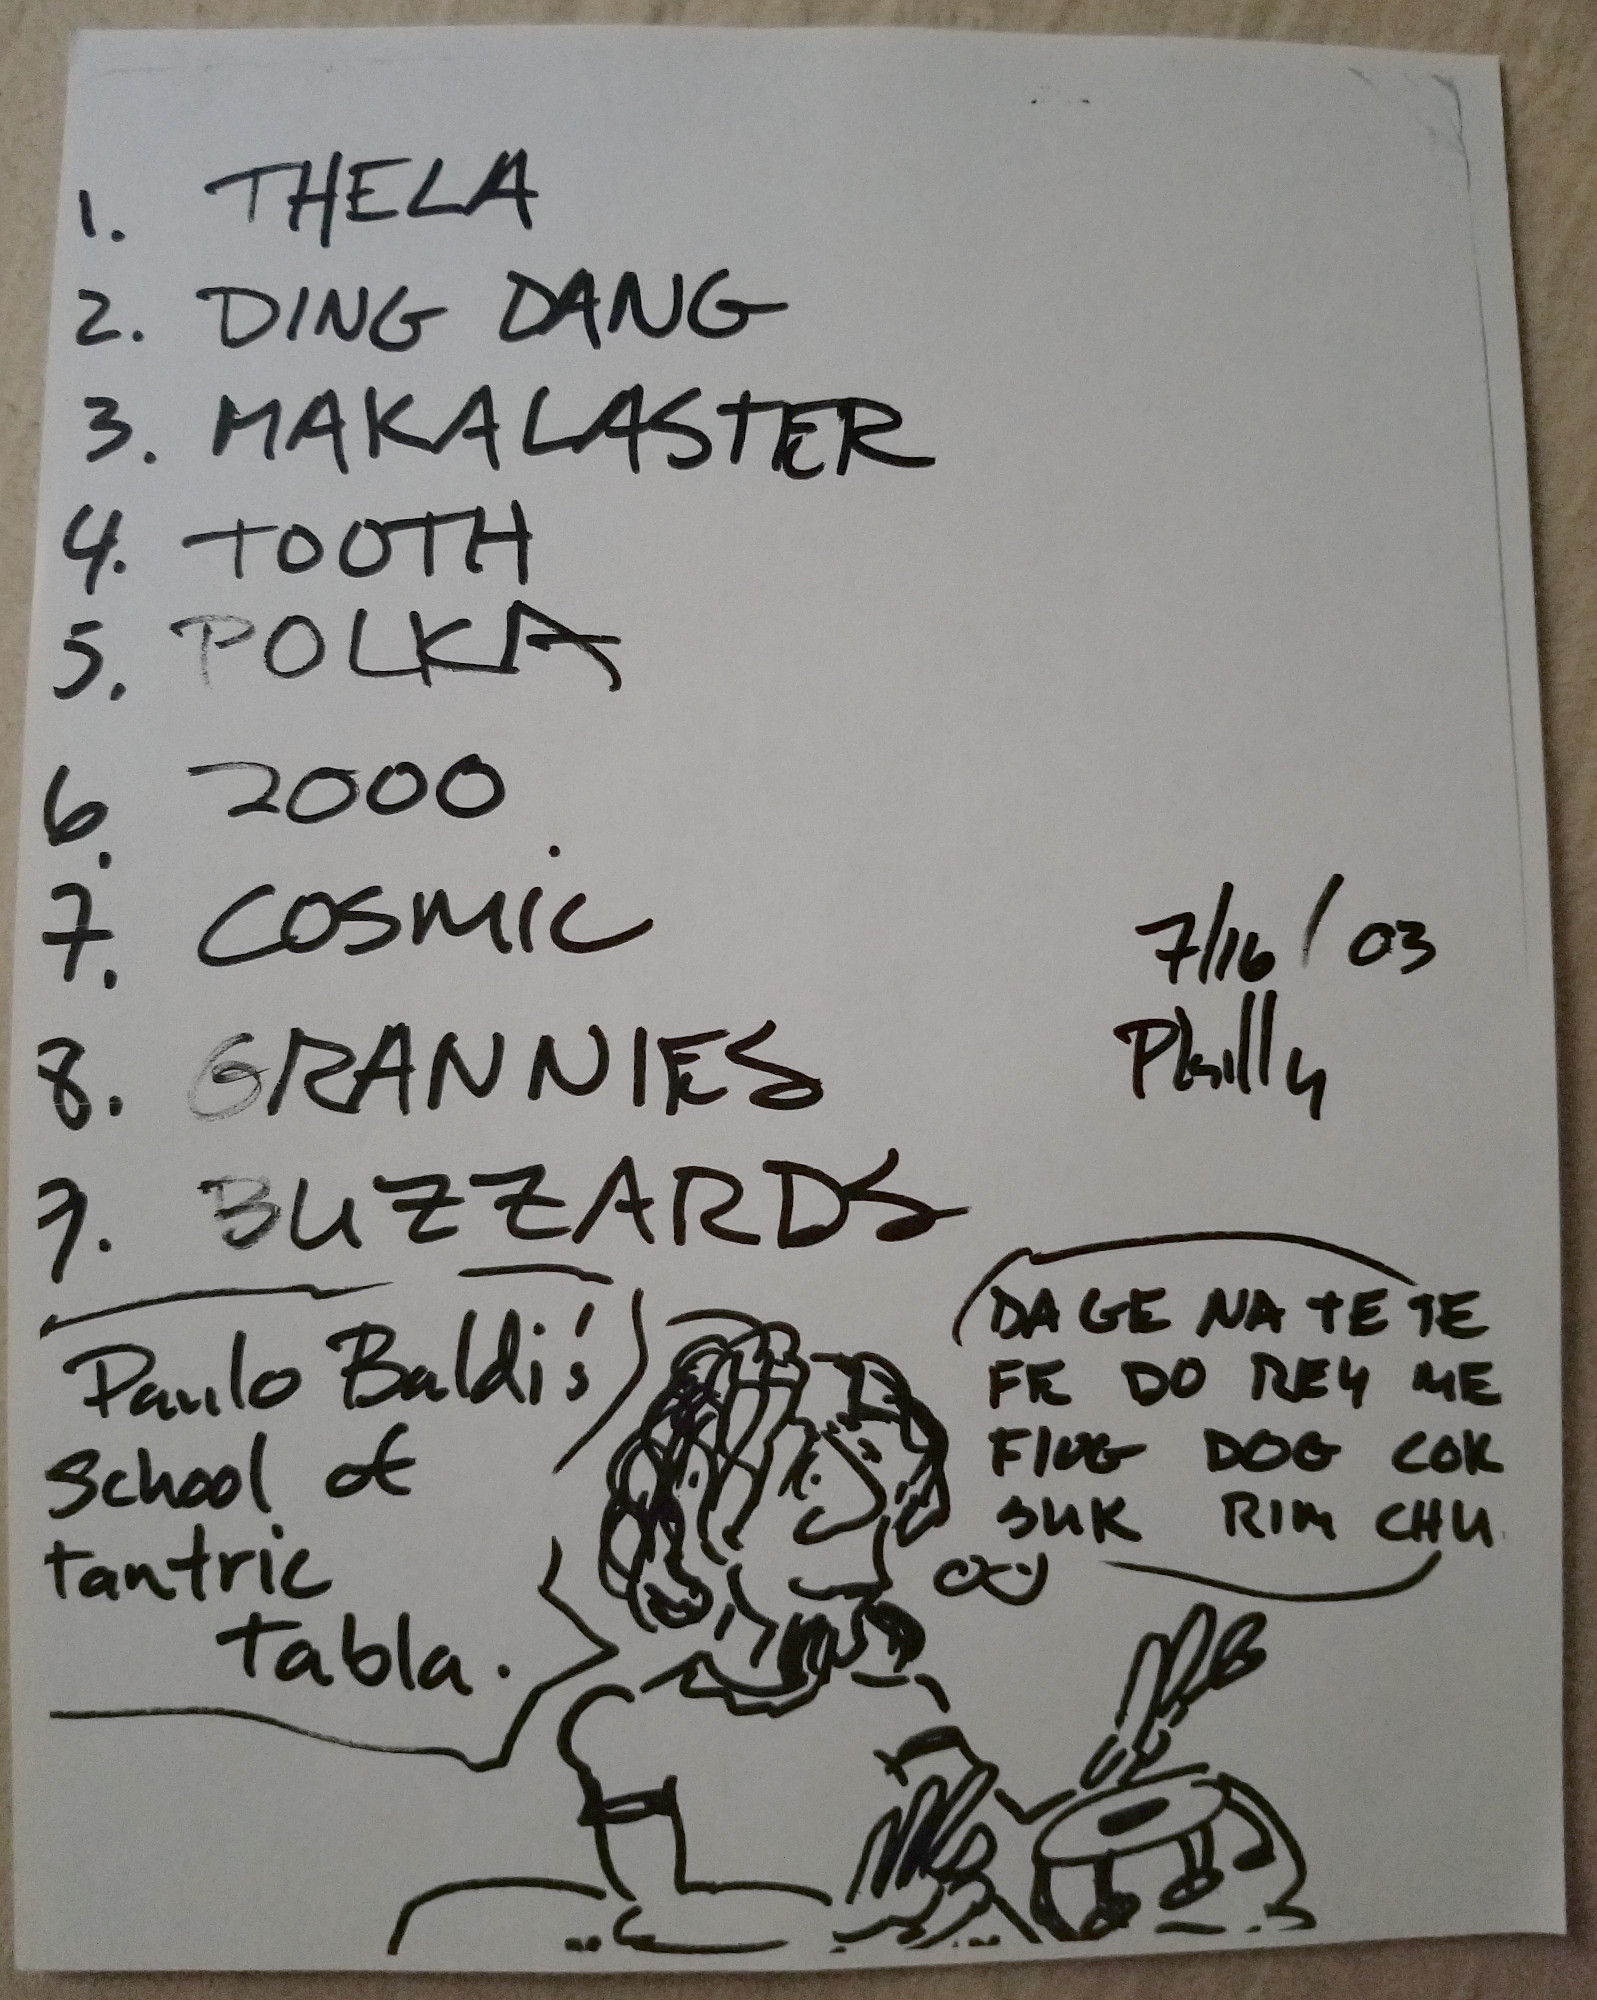 1. THELA
2. DING DANG
3. MAKALASTER
4. TOOTH
5. POLKA
6. 2000
7. COSMIC
8. GRANNIES
9. BUZZARDS
7/16/03
Philly
Paulo Baldi's
School of
tantric
tabla.
DA GE NA TE TE
FE DO REY ME
DOG COK
SUK RIM CHU